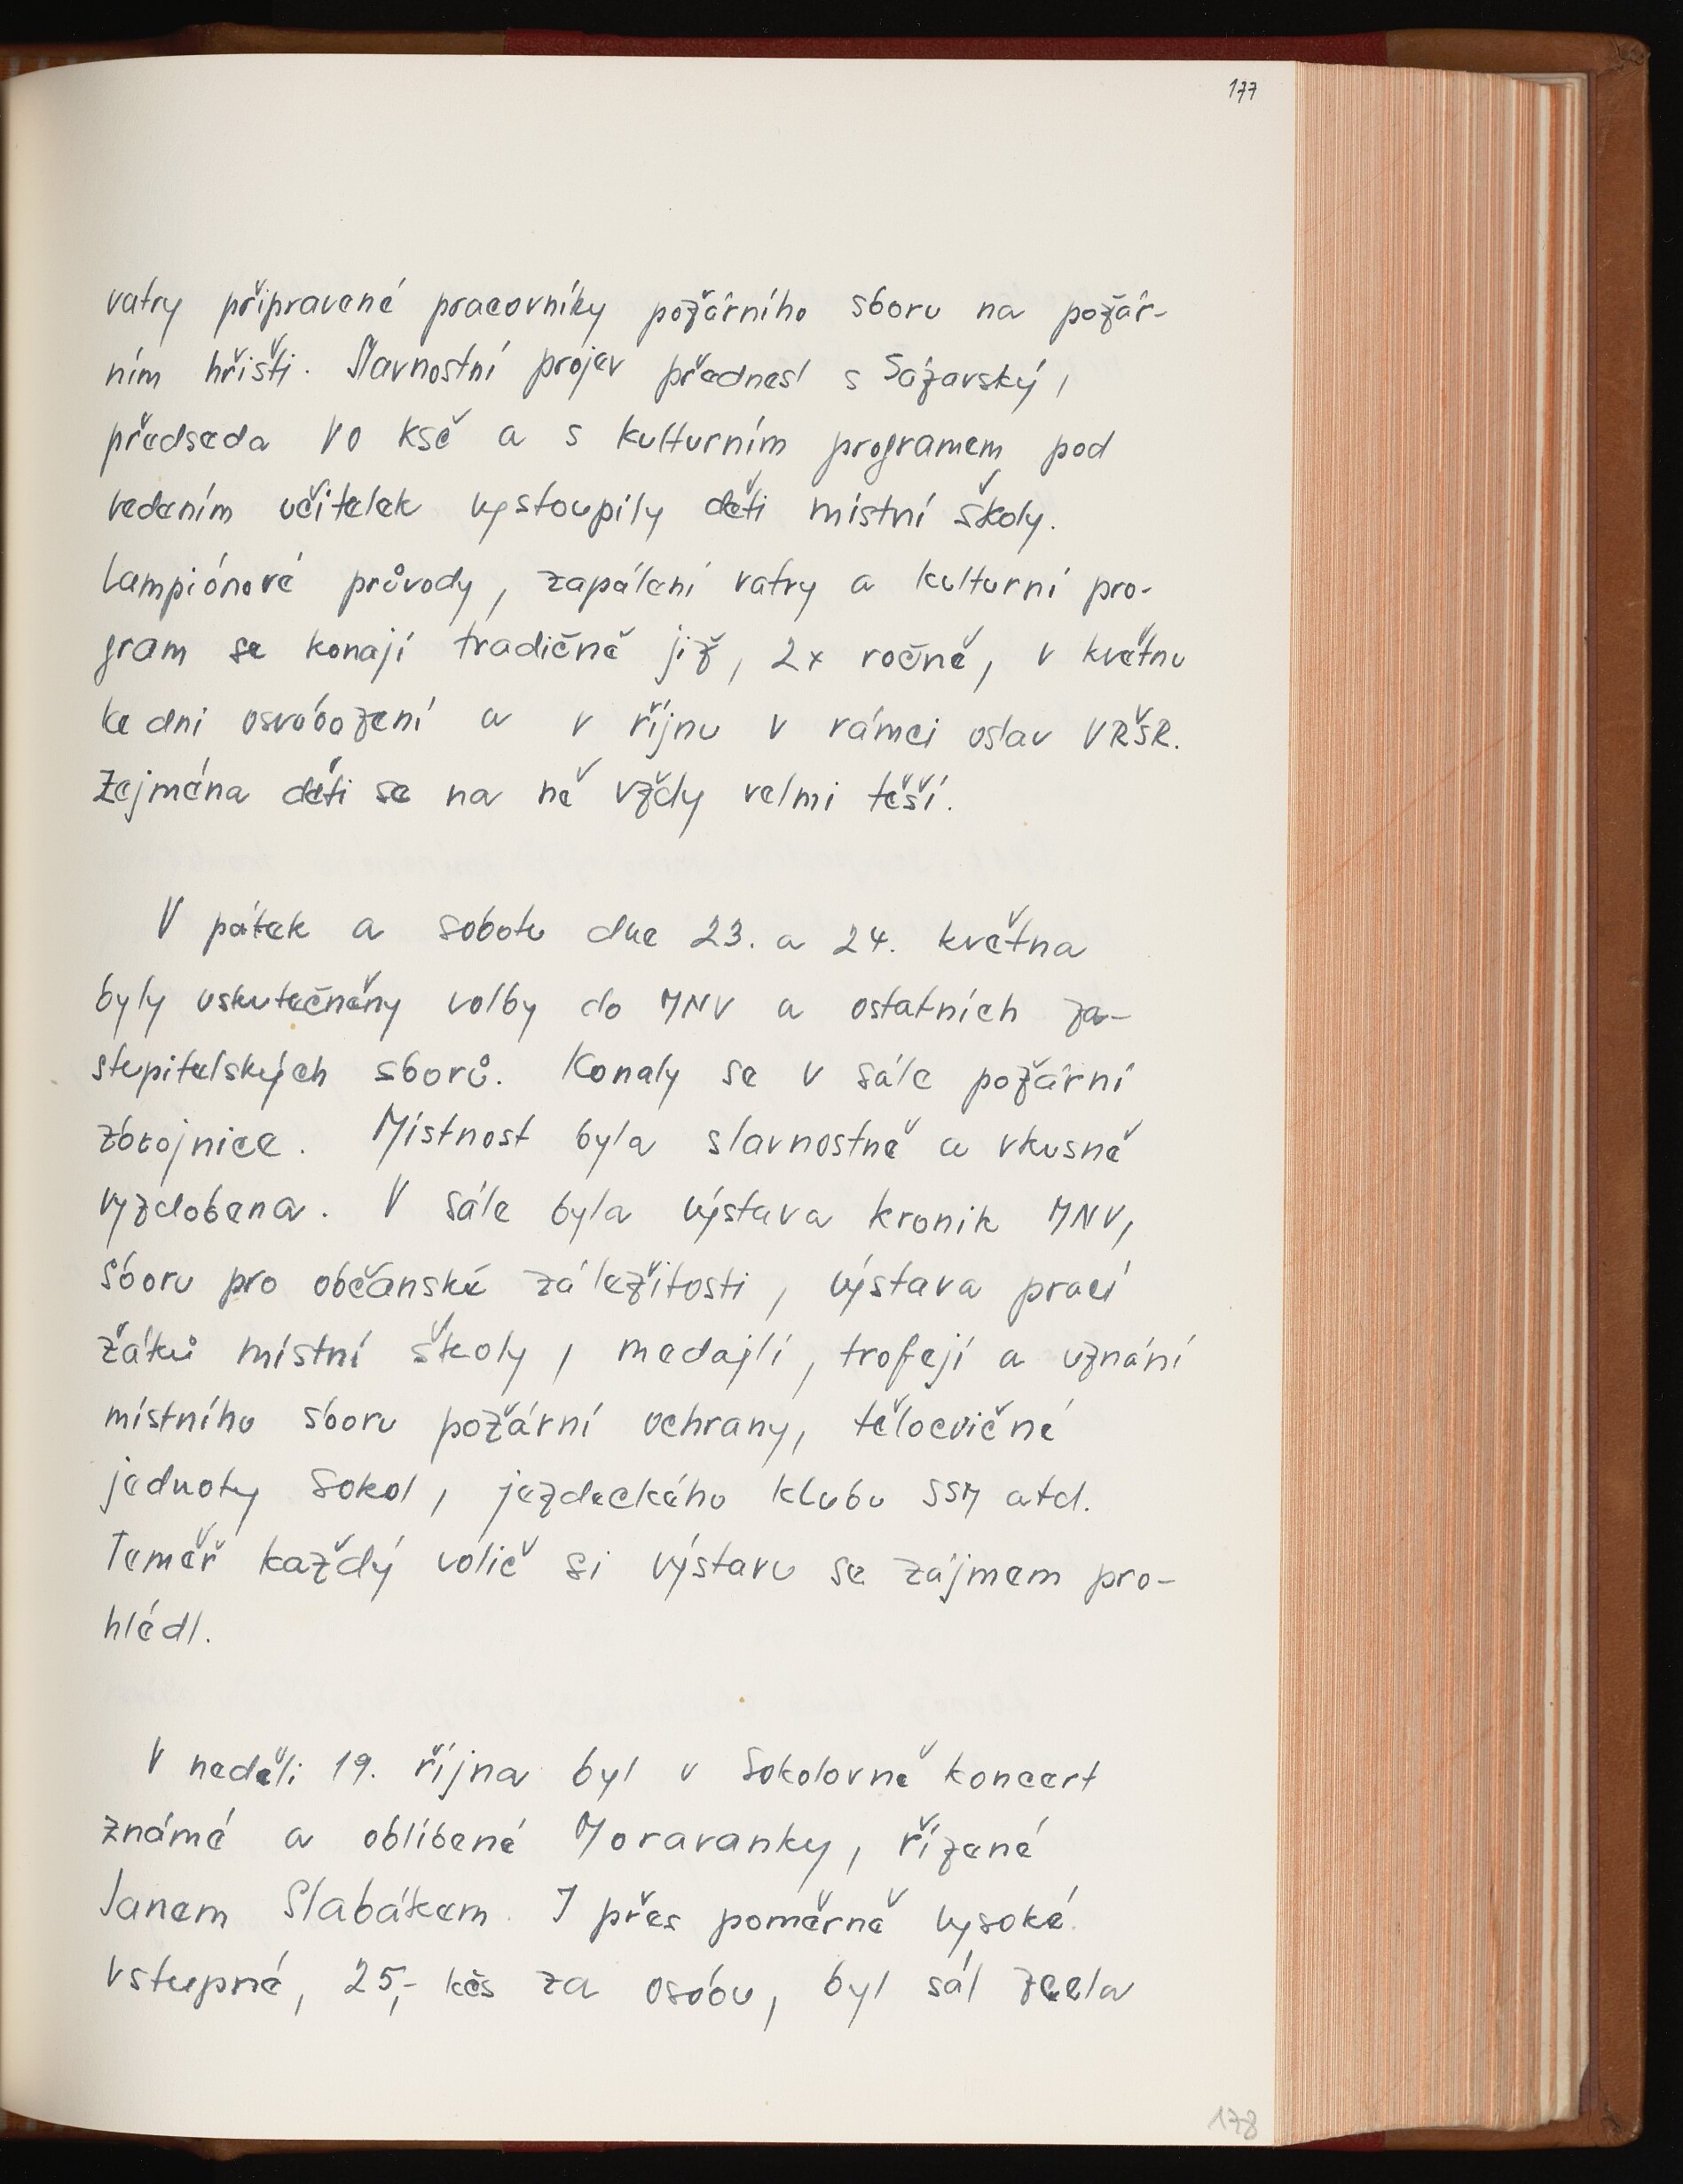 177
vatry připravené pracovníky požárního sboru na požár-
ním hřišti. Slavnostní projev přednesl s Sázavský,
předseda VO KSČ a s kulturním programem pod
vedením učitelek vystoupily děti místní školy.
Lampiónové průvody, zapálení vatry a kulturní pro-
gram se konají tradičně již, 2x ročně, v květnu
ke dni osvobození a v říjnu v rámci oslav VŘSR.
Zejména děti se na ně vždy velmi těší.
V pátek a sobotu dne 23. a 24. května
byly uskutečněny volby do MNV a ostatních za-
stupitelských sborů. Konaly se v sále požární
zbrojnice. Místnost byla slavnostně a vkusně
vyzdobena. V sále byla výstava kronik MNV,
sboru pro občanské záležitosti, výstava prací
žáků místní školy, medajlí, trofejí a uznání
místního sboru požární ochrany, tělocvičné
jednoty Sokol, jezdeckého klubu SSM atd.
Teměř každý volič si výstavu se zájmem pro-
hlédl.
V neděli 19. října byl v Sokolovně koncert
známé a oblíbené Moravanky, řízené
Janem Slabákem. I přes poměrně vysoké
vstupné, 25,- kčs za osobu, byl sál zcela
178